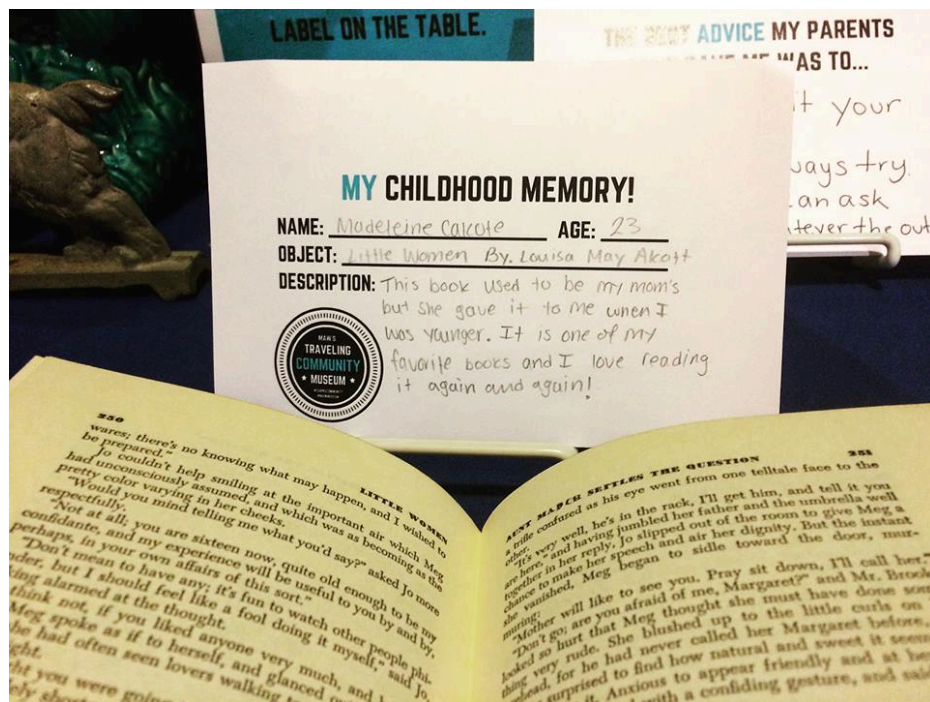 LABEL ON THE TABLE.
THE BEST ADVICE MY PARENTS
GAVE ME WAS TO...
it your
ways try.
can ask
the out
MY CHILDHOOD MEMORY!
NAME: Madeleine Calcote AGE: 23
OBJECT: Little Women By. Louisa May Alcott
DESCRIPTION: This book used to be my mom's
but she gave it to me when I
was younger. It is one of my
favorite books and I love reading
it again and again!
MAW'S
TRAVELING
COMMUNITY
MUSEUM
250
LITTLE WOMEN
wares; there's no knowing what may happen, and I wished to
be prepared."
Jo couldn't help smiling at the important air which Meg
had unconsciously assumed, and which was as becoming as the
pretty color varying in her cheeks.
"Would you mind telling me what you'd say?" asked Jo more
respectfully.
"Not at all; you are sixteen now, quite old enough to be my
confidante, and my experience will be useful to you by and by,
perhaps, in your own affairs of this sort."
"Don't mean to have any; it's fun to watch other people phi-
nder, but I should feel like a fool doing it myself," said Jo,
ing alarmed at the thought.
think not, if you liked anyone very much, and
Meg spoke as if to herself, and glanced
he had often seen lovers walking
ght.
ght you were going
ely
AUNT MARCH SETTLES THE QUESTION
251
a trifle confused as his eye went from one telltale face to the
other.
"It's very well, he's in the rack, I'll get him, and tell it you
are here," and having jumbled her father and the umbrella well
together in her reply, Jo slipped out of the room to give Meg a
chance to make her speech and air her dignity. But the instant
she vanished, Meg began to sidle toward the door, mur-
muring:
"Mother will like to see you. Pray sit down, I'll call her."
"Don't go; are you afraid of me, Margaret?" and Mr. Brook
looked so hurt that Meg thought she must have done som
thing very rude. She blushed up to the little curls on
ehead, for he had never called her Margaret before,
surprised to find how natural and sweet it seem
it. Anxious to appear friendly and at
with a confiding gesture, and said